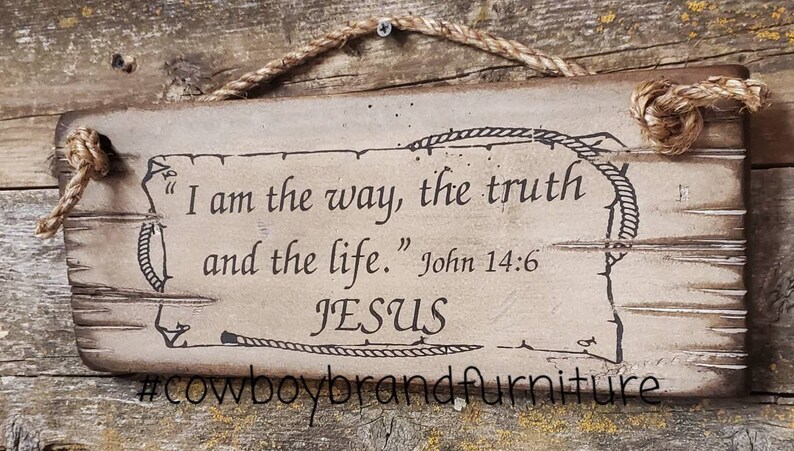 “ I am the way, the truth
and the life.” John 14:6
JESUS
#cowboybrandfurniture